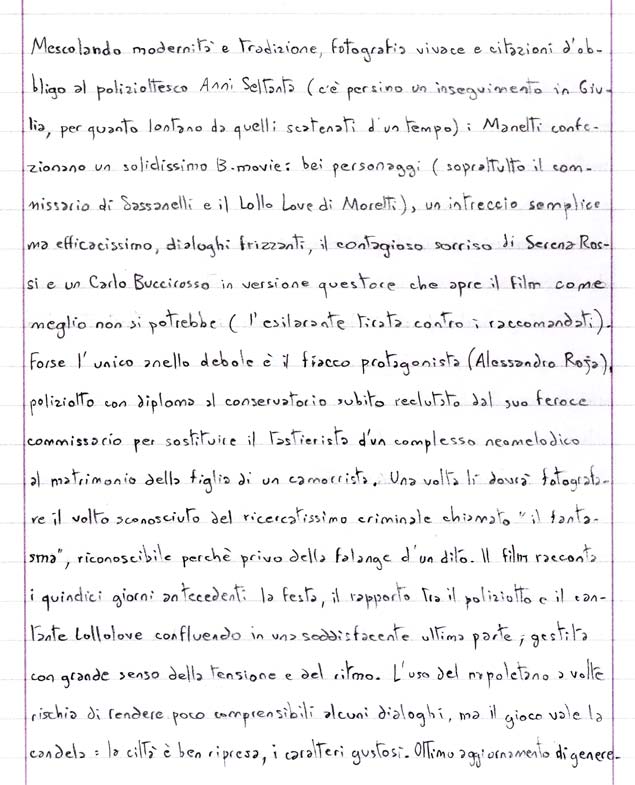 Mescolando modernità e Tradizione, fotografia vivace e citazioni d'ob-
bligo al poliziottesco Anni Settanta (c'è persino un inseguimento in Giu-
lia, per quanto lontano da quelli scatenati d'un tempo) i Manetti confe-
zionano un solidissimo B-movie: bei personaggi (soprattutto il com-
missario di Sassanelli e il Lollo Love di Morelli), un intreccio semplice
ma efficacissimo, dialoghi frizzanti, il contagioso sorriso di Serena Ros-
si e un Carlo Buccirosso in versione questore che apre il film come
meglio non si potrebbe (l'esilarante tirata contro i raccomandati).
Forse l'unico anello debole è il fiacco protagonista (Alessandro Roja),
poliziotto con diploma al conservatorio subito reclutato dal suo feroce
commissario per sostituire il Tastierista d'un complesso neomelodico
al matrimonio della figlia di un camorrista. Una volta lì dovrà fotografa-
re il volto sconosciuto del ricercatissimo criminale chiamato "il fanta-
sma", riconoscibile perchè privo della falange d'un dito. Il film racconta
i quindici giorni antecedenti la festa, il rapporto tra il poliziotto e il can-
tante Lollolove confluendo in una soddisfacente ultima parte, gestita
con grande senso della tensione e del ritmo. L'uso del napoletano a volte
rischia di rendere poco comprensibili alcuni dialoghi, ma il gioco vale la
candela: la città è ben ripresa, i caratteri gustosi. Ottimo aggiornamento di genere.